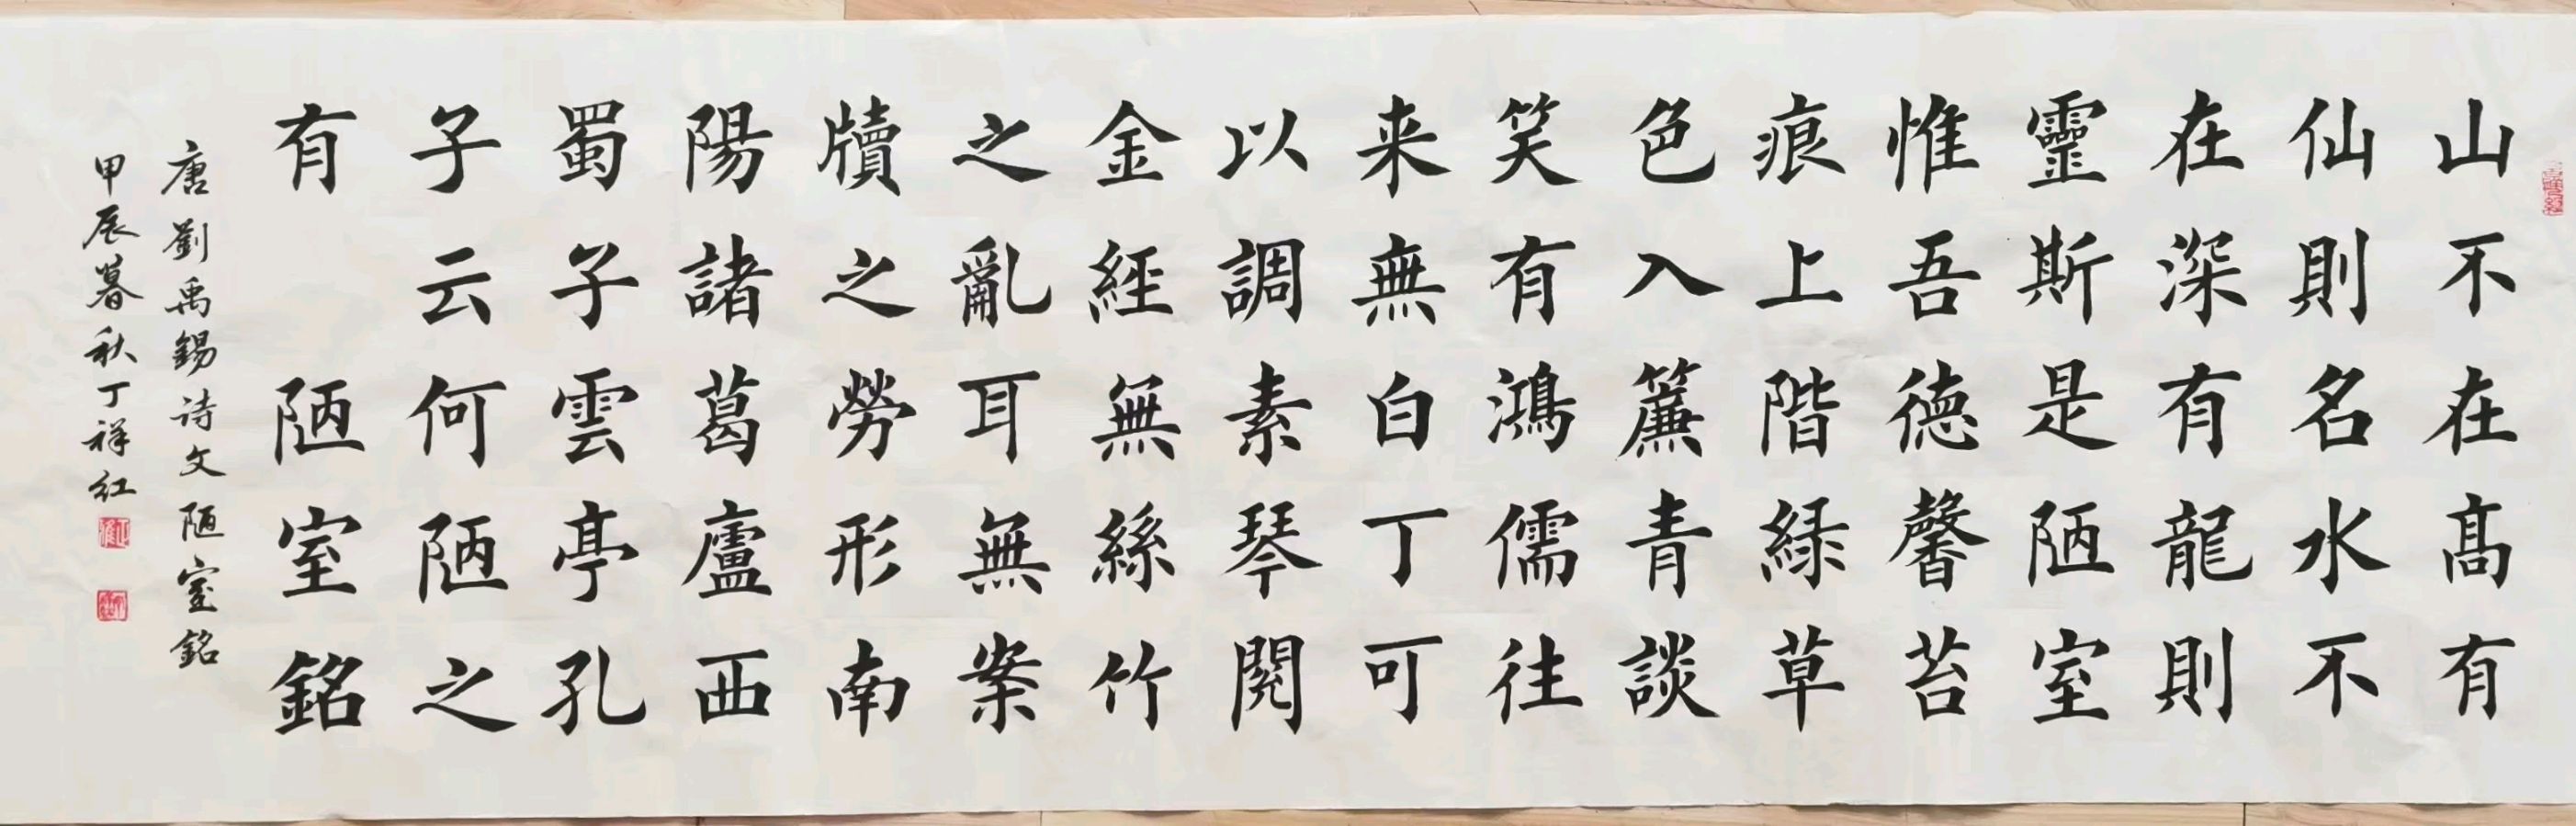 山不在高有
仙則名水不
在深有龍則
靈斯是陋室
惟吾德馨苔
痕上階緑草
色入簾青談
笑有鴻儒往
来無白丁可
以調素琴閱
金經無絲竹
之亂耳無案
牘之勞形南
陽諸葛廬西
蜀子雲亭孔
子云何陋之
有 陋室銘
唐劉禹錫诗文陋室銘
甲辰暮秋丁祥红